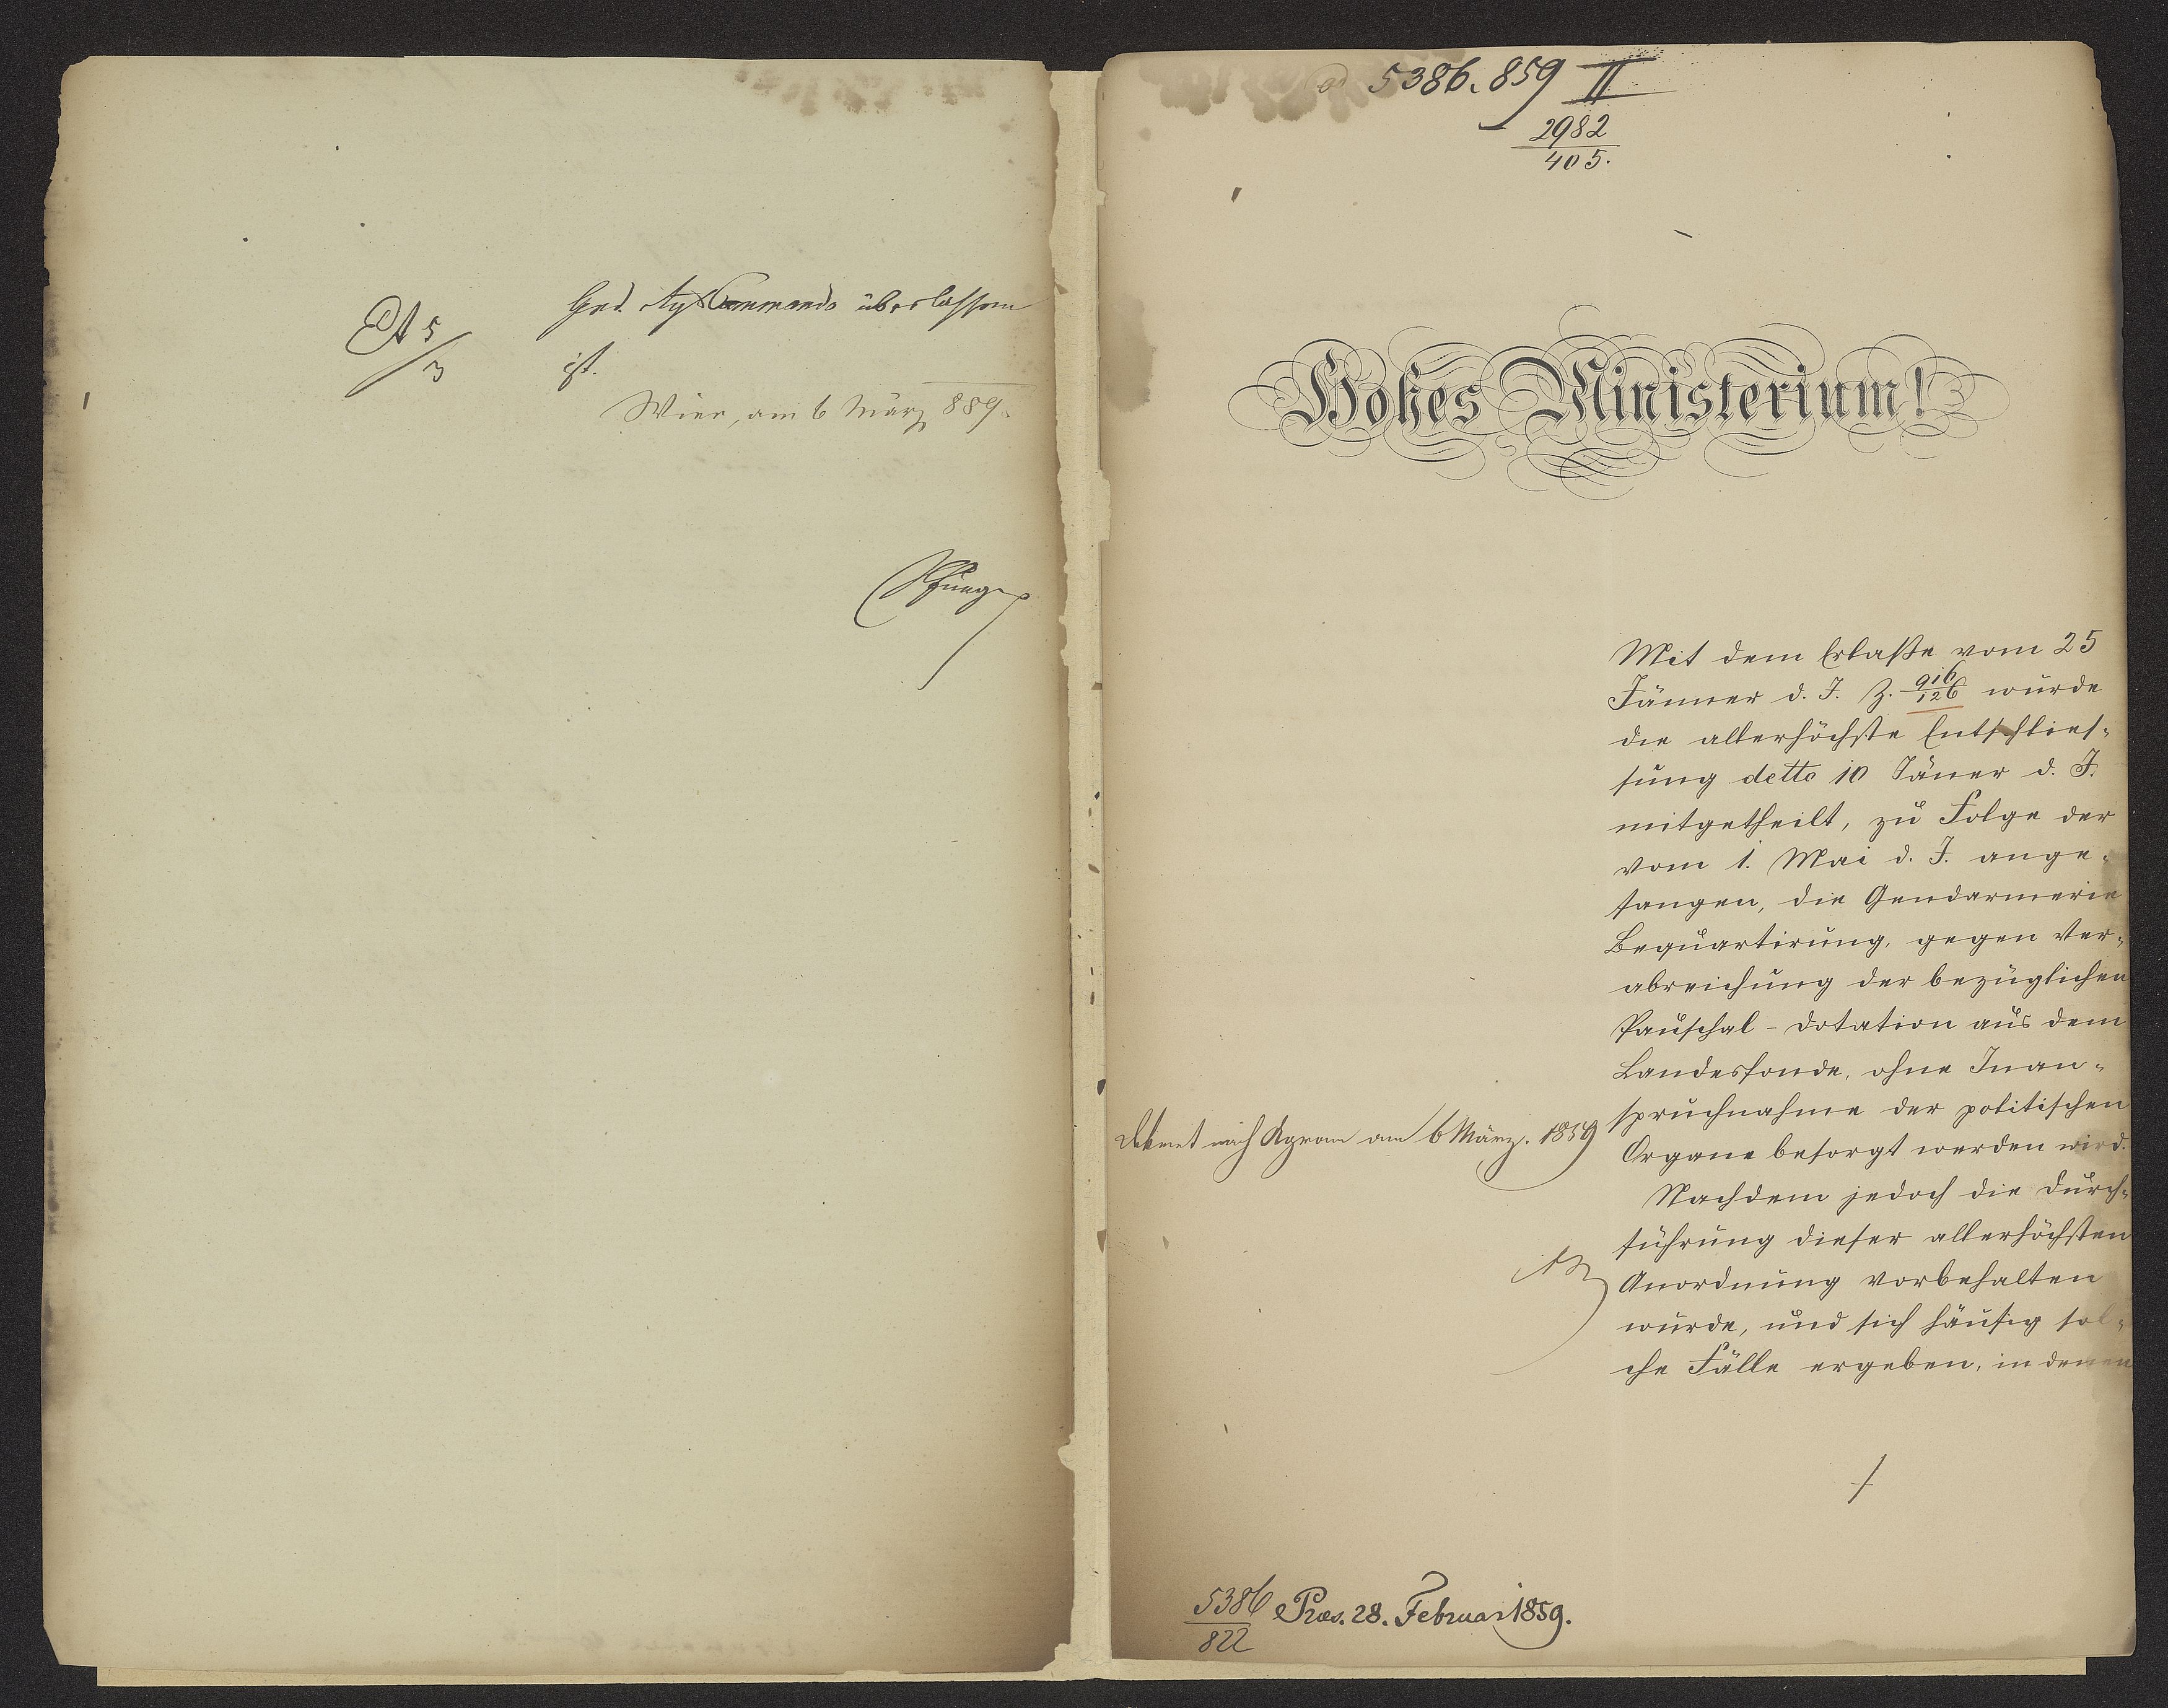 Gnd. Rgts Commando überlassen
ist.
Wien, am 6 März 859.
5386. 859 II
2982
405.
Hohes Ministerium!
Mit dem Erlaße vom 25
Jänner d. J. Z. 916/126 wurde
die allerhöchste Entschlies-
sung detto 10 Jäner d. J.
mitgetheilt, zu Folge der
vom 1. Mai d. J. ange-
fangen, die Gendarmerie
Bequartirung, gegen Ver-
abreichung der bezüglichen
Pauschal-Dotation aus dem
Landesfonde, ohne Inan-
spruchnahme der politischen
Organe besorgt werden wird.
Nachdem jedoch die Durch-
führung dieser allerhöchsten
Anordnung vorbehalten
wurde, und sich häufig sol-
che Fälle ergeben, in denen
Dekret nach Agram am 6 März. 1859
5386
822
Præs. 28. Februar 1859.